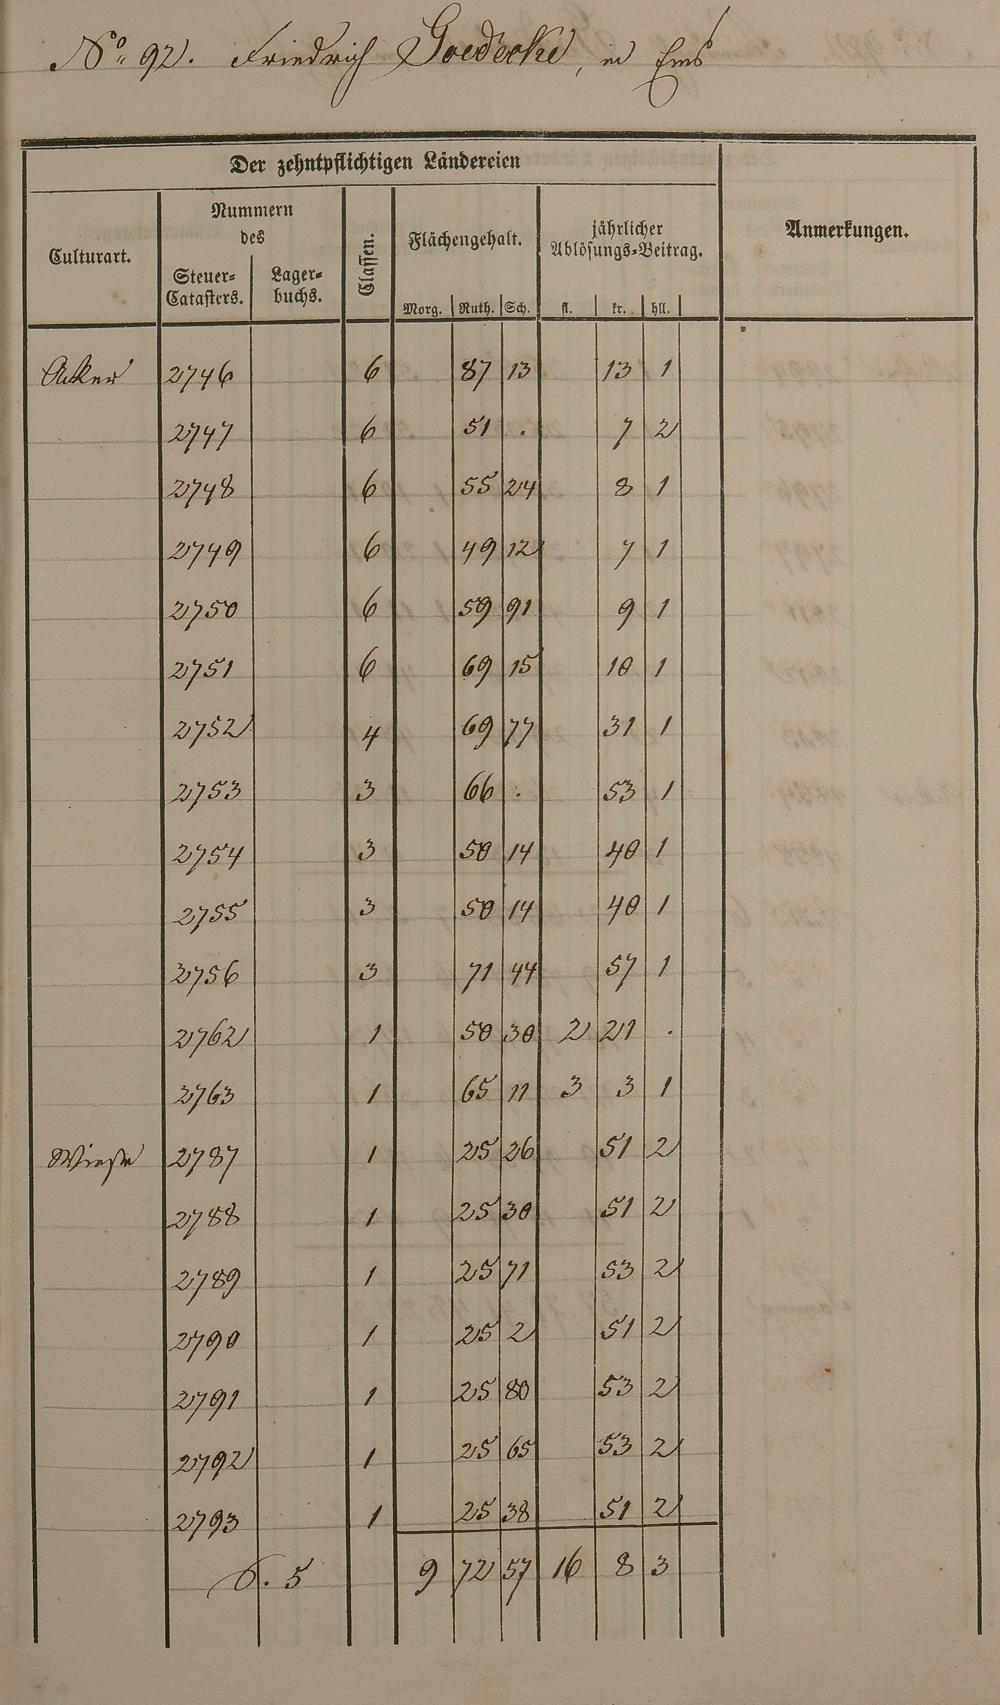 No. 92. Friedrich Goedecke, in Ems
Der zehntpflichtigen Ländereien
Culturart.
Nummern
des
Steuer-
Catasters.
Lager-
buchs.
Classen.
Flächengehalt.
Morg. Ruth. Sch.
jährlicher
Ablösungs-Beitrag.
fl. kr. hll.
Anmerkungen.
Acker 2746 6 87 13 13 1
2747 6 51 . 7 2
2748 6 55 24 8 1
2749 6 49 12 7 1
2750 6 59 91 9 1
2751 6 69 15 10 1
2752 4 69 77 31 1
2753 3 66 . 53 1
2754 3 50 14 40 1
2755 3 50 14 40 1
2756 3 71 44 57 1
2762 1 50 30 2 21 .
2763 1 65 11 3 3 1
Wiese 2787 1 25 26 51 2
2788 1 25 30 51 2
2789 1 25 71 53 2
2790 1 25 2 51 2
2791 1 25 80 53 2
2792 1 25 65 53 2
2793 1 25 38 51 2
S. 5 9 72 57 16 8 3